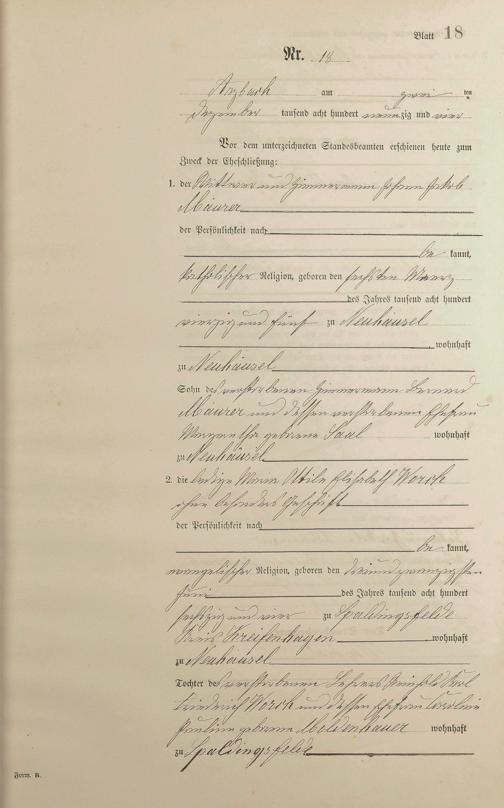 Blatt 18
Nr. 18
Arzbach am zwei ten
Dezember tausend acht hundert neunzig und vier
Vor dem unterzeichneten Standesbeamten erschienen heute zum
Zweck der Eheschließung:
1. der Wittwer und Zimmermann Johann Jakob
Mäurer
der Persönlichkeit nach
be kannt,
katholischer Religion, geboren den sechsten Maerz
des Jahres tausend acht hundert
vierzig und fünf zu Neuhäusel
, wohnhaft
zu Neuhäusel
Sohn des verstorbenen Zimmermann Bernard
Mäurer und dessen verstorbenen Ehefrau
Margretha geborene Saal wohnhaft
zu Neuhäusel
2. die ledige Marie Otilie Elisabeth Worch
ohne besonders Geschäft
der Persönlichkeit nach
be kannt,
evangelischer Religion, geboren den dreiundzwanzigsten
Juni des Jahres tausend acht hundert
sechszig und vier zu Spaldingsfelde
Kreis Greifenhagen, wohnhaft
zu Neuhäusel
Tochter des verstorbenen Lehrers Reinhold Karl
Friederich Worch und dessen Ehefrau Caroline
Pauline geborene Moldenhauer wohnhaft
zu Spaldingsfelde
Form. B.